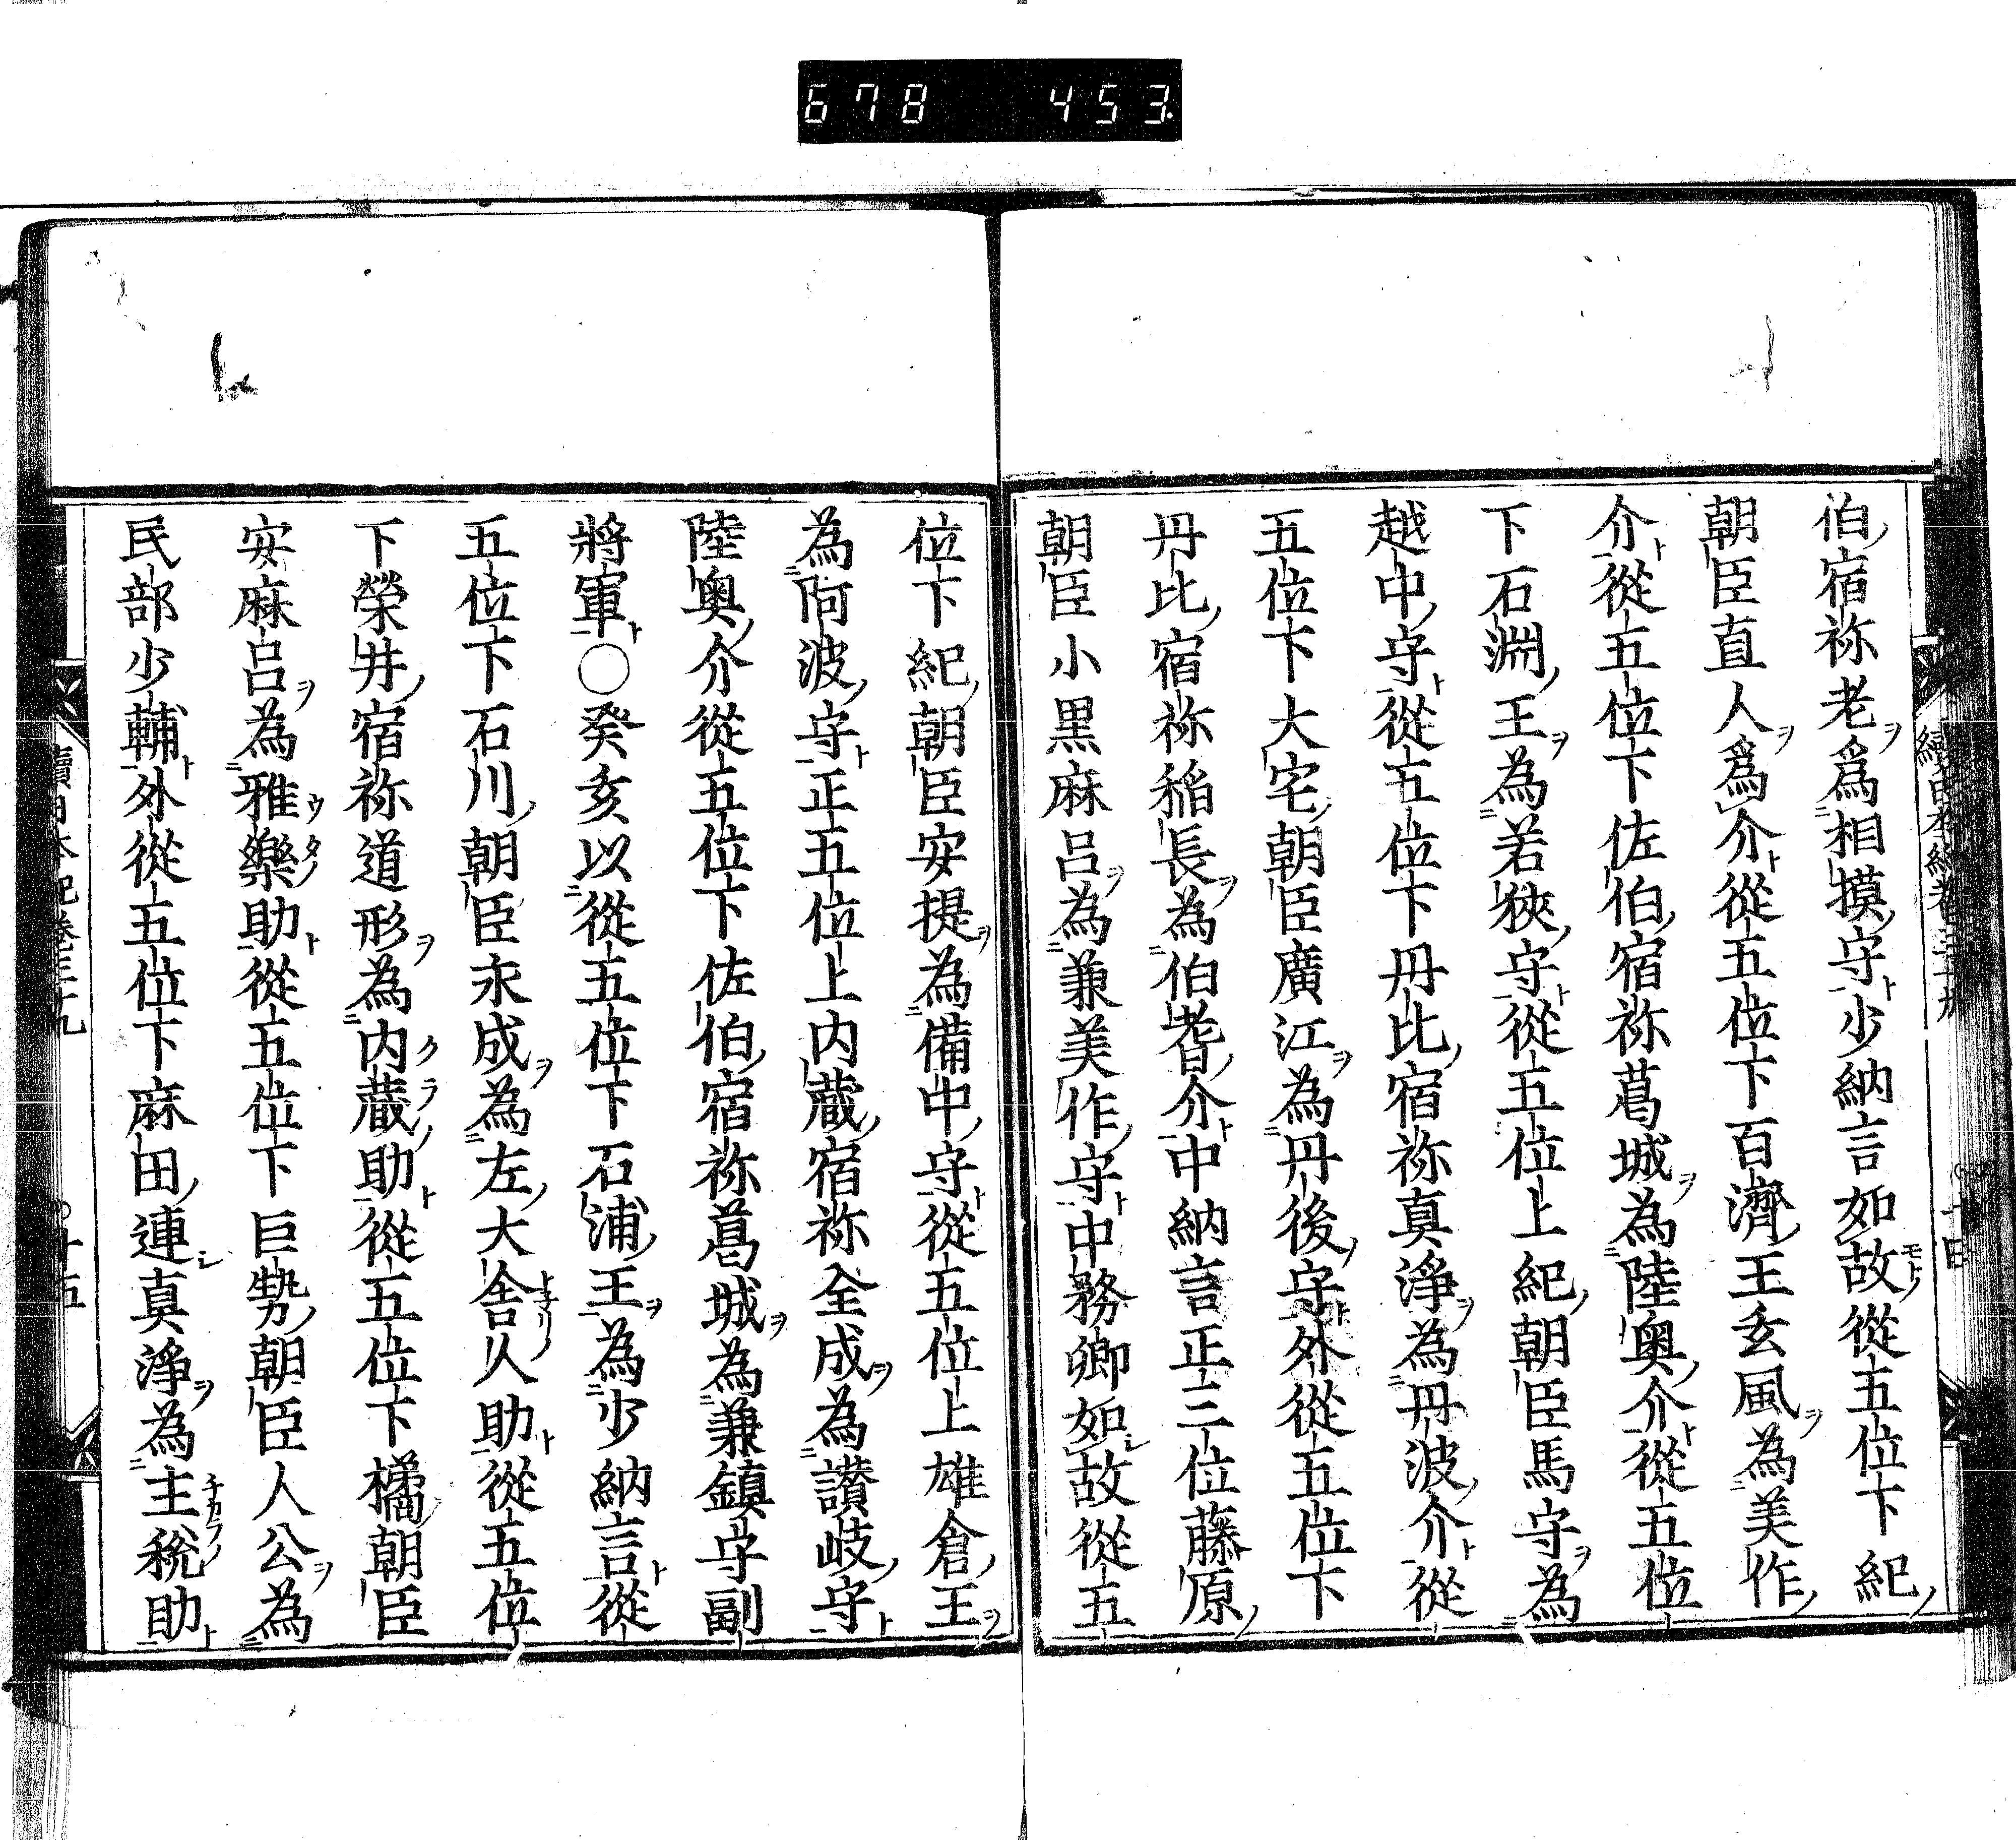 678 453
伯宿祢老爲相摸守少納言如故從五位下紀
朝臣直人爲介從五位下百濟王玄風為美作
介從五位下佐伯宿祢葛城為陸奥介從五位
下石淵王為若狹守從五位上紀朝臣馬守為
越中守從五位下丹比宿祢真淨為丹波介從
五位下大宅朝臣廣江為丹後守外從五位下
丹比宿祢稲長為伯耆介中納言正三位藤原
朝臣小黒麻呂為兼美作守中務卿如故從五
位下紀朝臣安提為備中守從五位上雄倉王
為阿波守正五位上内藏宿祢全成為讃岐守
陸奥介從五位下佐伯宿祢葛城為兼鎮守副
將軍○癸亥以從五位下石浦王為少納言從
五位下石川朝臣永成為左大舎人助從五位
下榮井宿祢道形為内藏助從五位下橘朝臣
安麻呂為雅樂助從五位下巨勢朝臣人公為
民部少輔外從五位下麻田連真淨為主稅助
續日本紀卷三十九
十五